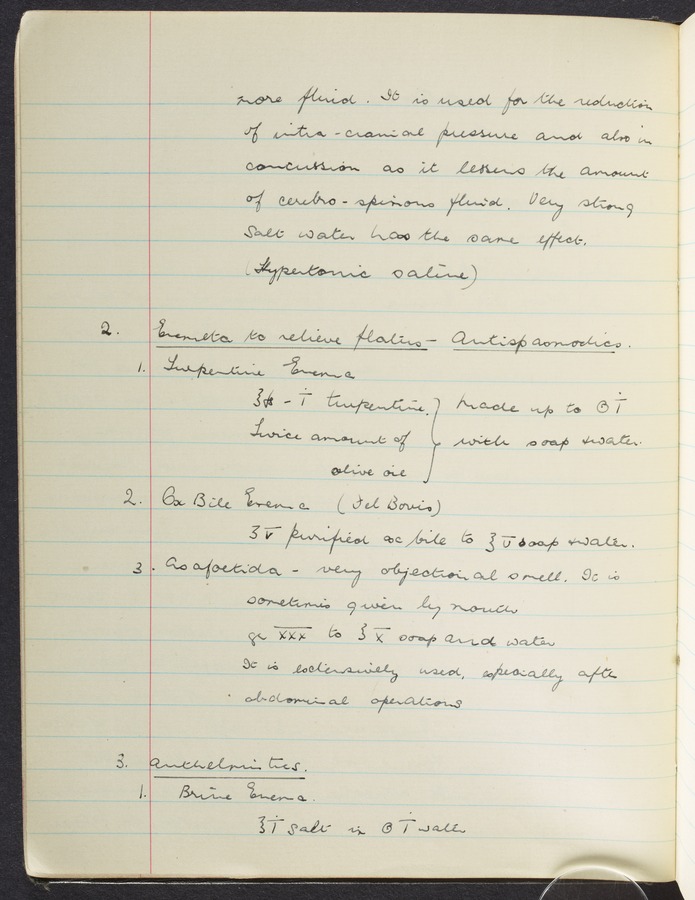 more fluid. It is used for the reduction
of intra-cranial pressure and also in
concussion as it lessens the amount
of cerebro-spinous fluid. Very strong
Salt water has the same effect.
(Hypertonic saline)
2. Enemeta to relieve flatus - Antispasmodics.
1. Turpentine Enema
℥ - i turpentine. } made up to O i
Twice amount of } with soap & water.
olive oil
2. Ox Bile Enema (Fel Bovis)
ʒ v purified ox bile to ℥ v soap & water.
3. Asafoetida - very objectional smell. It is
sometimes given by mouth
gr xxx to ℥ x soap and water
It is extensively used, especially after
abdominal operations
3. Anthelmintics.
1. Brine Enema.
℥ i Salt in O i water